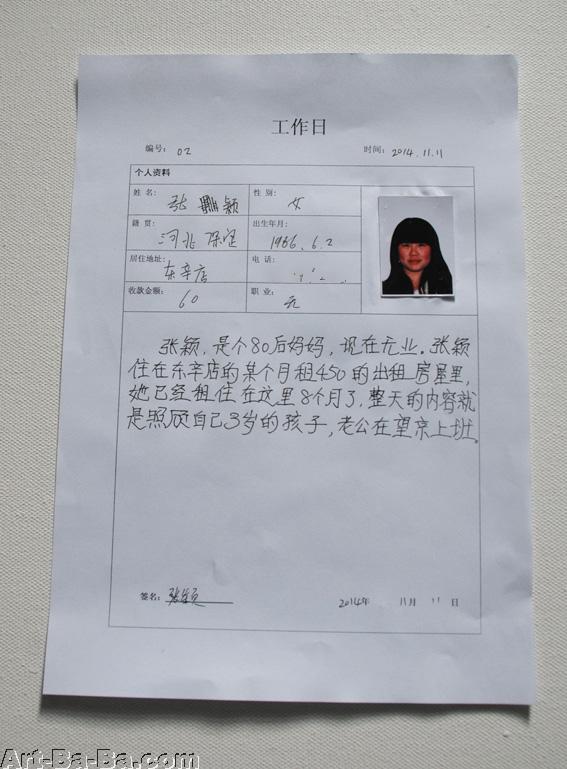 工作日
编号: 02 时间: 2014.11.11
个人资料
姓名: 张 颖 性别: 女
籍贯: 河北 保定 出生年月: 1986.6.2
居住地址: 东辛店 电话:
收款金额: 60 职业: 无
张颖,是个80后妈妈,现在无业。张颖
住在东辛店的某个月租450的出租房屋里,
她已经租住在这里8个月了,整天的内容就
是照顾自己3岁的孩子,老公在望京上班。
签名: 张颖 2014年 11月 11日
Art-Ba-Ba.com